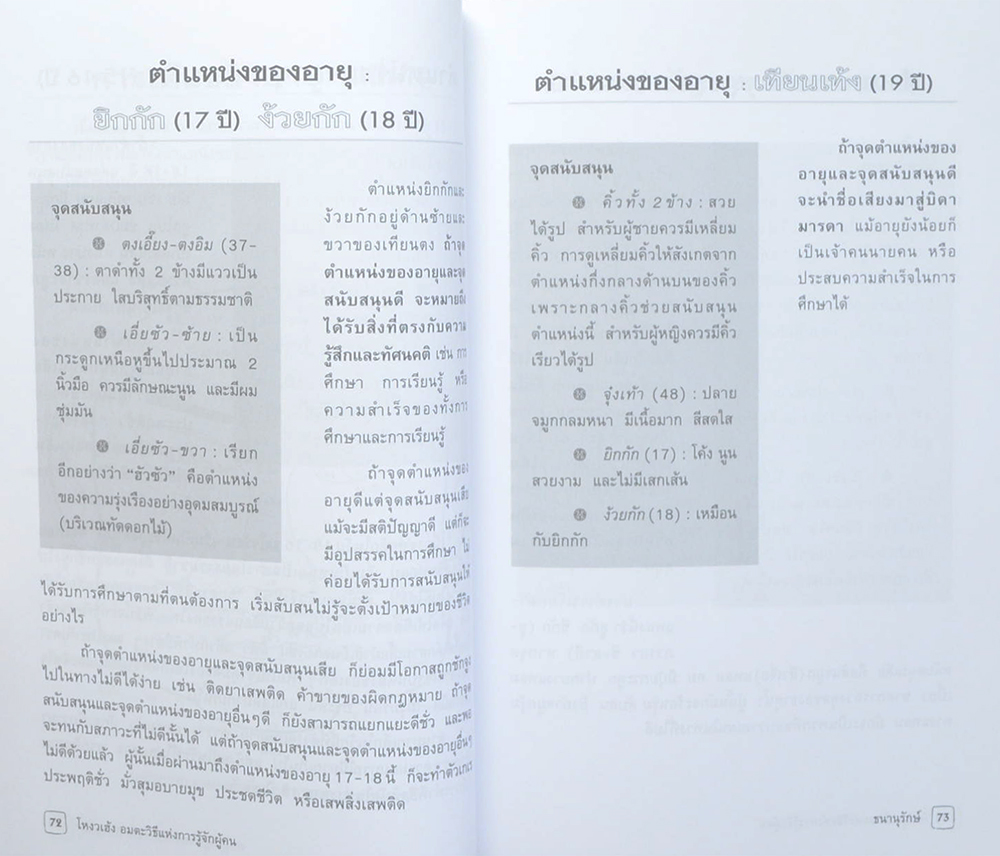 ตำแหน่งของอายุ :
ยิกกัก (17 ปี) ง้วยกัก (18 ปี)
จุดสนับสนุน
ตงเอี๊ยง-ตงอิม (37-
38) : ตาดำทั้ง 2 ข้างมีแววเป็น
ประกาย ใสบริสุทธิ์ตามธรรมชาติ
เอี่ยซัว-ซ้าย : เป็น
กระดูกเหนือหูขึ้นไปประมาณ 2
นิ้วมือ ควรมีลักษณะนูน และมีผม
ชุ่มมัน
เอี่ยซัว-ขวา : เรียก
อีกอย่างว่า “ฮัวซัว” คือตำแหน่ง
ของความรุ่งเรืองอย่างอุดมสมบูรณ์
(บริเวณทัดดอกไม้)
ตำแหน่งยิกกักและ
ง้วยกักอยู่ด้านซ้ายและ
ขวาของเทียนตง ถ้าจุด
ตำแหน่งของอายุและจุด
สนับสนุนดี จะหมายถึง
ได้รับสิ่งที่ตรงกับความ
รู้สึกและทัศนคติ เช่น การ
ศึกษา การเรียนรู้ หรือ
ความสำเร็จของทั้งการ
ศึกษาและการเรียนรู้
ถ้าจุดตำแหน่งของ
อายุดีแต่จุดสนับสนุนเสีย
แม้จะมีสติปัญญาดี แต่ก็จะ
มีอุปสรรคในการศึกษา ไม่
ค่อยได้รับการสนับสนุนให้
ได้รับการศึกษาตามที่ตนต้องการ เริ่มสับสนไม่รู้จะตั้งเป้าหมายของชีวิต
อย่างไร
ถ้าจุดตำแหน่งของอายุและจุดสนับสนุนเสีย ก็ย่อมมีโอกาสถูกชักจูง
ไปในทางไม่ดีได้ง่าย เช่น ติดยาเสพติด ค้าขายของผิดกฎหมาย ถ้าจุด
สนับสนุนและจุดตำแหน่งของอายุอื่นๆดี ก็ยังสามารถแยกแยะดีชั่ว และพอ
จะทนกับสภาวะที่ไม่ดีนั้นได้ แต่ถ้าจุดสนับสนุนและจุดตำแหน่งของอายุอื่นๆ
ไม่ดีด้วยแล้ว ผู้นั้นเมื่อผ่านมาถึงตำแหน่งของอายุ 17-18 นี้ ก็จะทำตัวเกเร
ประพฤติชั่ว มั่วสุมอบายมุข ประชดชีวิต หรือเสพสิ่งเสพติด
72 โหงวเฮ้ง อมตะวิธีแห่งการรู้จักผู้คน
ตำแหน่งของอายุ : เทียนเท้ง (19 ปี)
จุดสนับสนุน
คิ้วทั้ง 2 ข้าง : สวย
ได้รูป สำหรับผู้ชายควรมีเหลี่ยม
คิ้ว การดูเหลี่ยมคิ้วให้สังเกตจาก
ตำแหน่งกึ่งกลางด้านบนของคิ้ว
เพราะกลางคิ้วช่วยสนับสนุน
ตำแหน่งนี้ สำหรับผู้หญิงควรมีคิ้ว
เรียวได้รูป
จุ๋งเท้า (48) : ปลาย
จมูกกลมหนา มีเนื้อมาก สีสดใส
ยิกกัก (17) : โค้ง นูน
สวยงาม และไม่มีเสกเส้น
ง้วยกัก (18) : เหมือน
กับยิกกัก
ถ้าจุดตำแหน่งของ
อายุและจุดสนับสนุนดี
จะนำชื่อเสียงมาสู่บิดา
มารดา แม้อายุยังน้อยก็
เป็นเจ้าคนนายคน หรือ
ประสบความสำเร็จในการ
ศึกษาได้
ธนานุรักษ์ 73